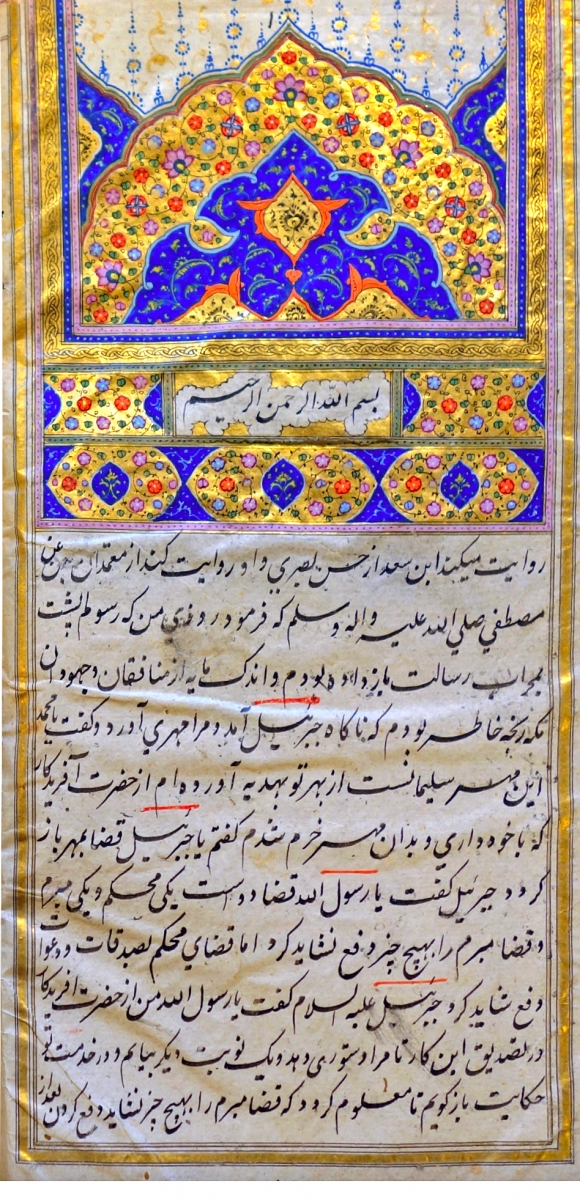 ۱
بسم الله الرحمن الرحیم
روایت میکند ابن سعد از حسن بصری و او روایت کند از معتمدان
مصطفی صلی الله علیه واله وسلم که فرمود روزی من که رسولم پشت
بمحراب رسالت باز داده بودم و اندک مایه از منافقان و جهودان
رنجه خاطر بودم که ناکاه جبرئیل آمد و مرا مهری آورد و کفت یا محمد
این مهر سلیمانست از بهر تو بهدیه آورده ام از حضرت آفریدکار
که با خود داری و بدان مهر خرم شدم کفتم یا جبرئیل قضا بمهر باز
کردد جبرئیل کفت یا رسول الله قضا دو است یکی محکم و یکی مبرم
و قضا مبرم را بهیچ چیز دفع نشاید کرد اما قضای محکم بصدقات و دعوات
دفع شاید کرد جبرئیل علیه السلام کفت یا رسول الله من از حضرت آفریدکار
در تصدیق این کار تا مرا دستوری دهد و یک نوبت دیکر بیایم و در خدمت تو
حکایت باز کویم تا معلوم کردد که قضا مبرم را بهیچ چیز نشاید دفع کردن بعد از